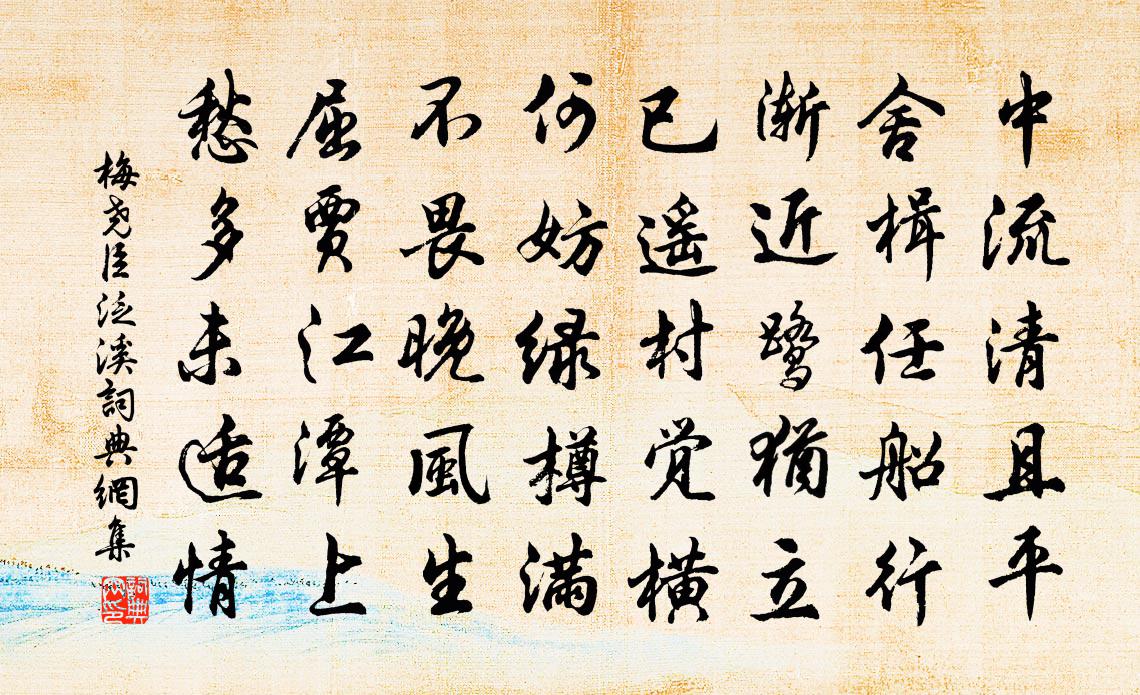 中流清且平
舍楫任船行
渐近鹭犹立
已遥村觉横
何妨绿樽满
不畏晚風生
屈贾江潭上
愁多未适情
梅尧臣泛溪詞典網集